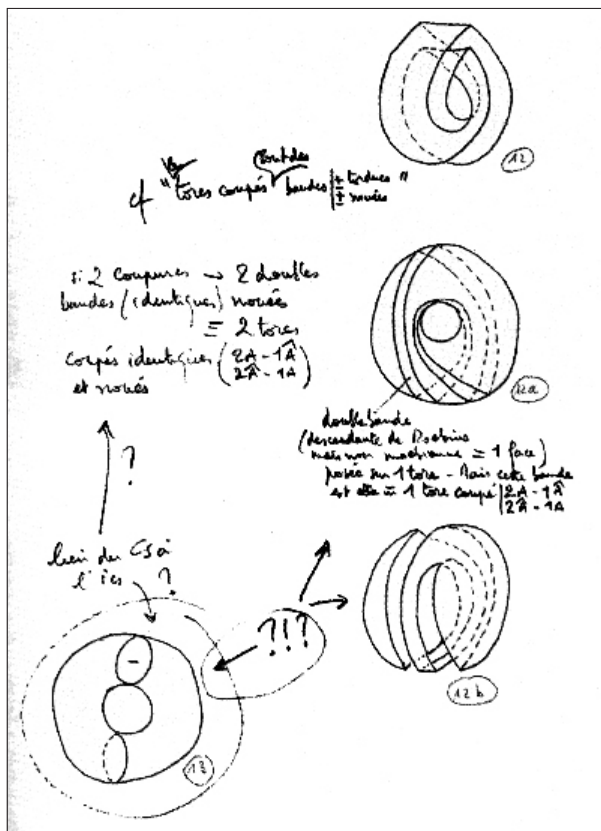 12
cf " tores coupés bandes ± tordues "
± nouées
si 2 coupures → 2 doubles
bandes (identiques) nouées
≡ 2 tores
coupés identiques (2A - 1Â
2Â - 1A)
et noués
12a
double bande
(descendante de
mais non = 1 face)
posée sur 1 tore - Mais cette bande
est elle = 1 tore coupé | 2A - 1Â
2Â - 1A
?
lien du CS à
l'ics ?
?!?
-
12b
13